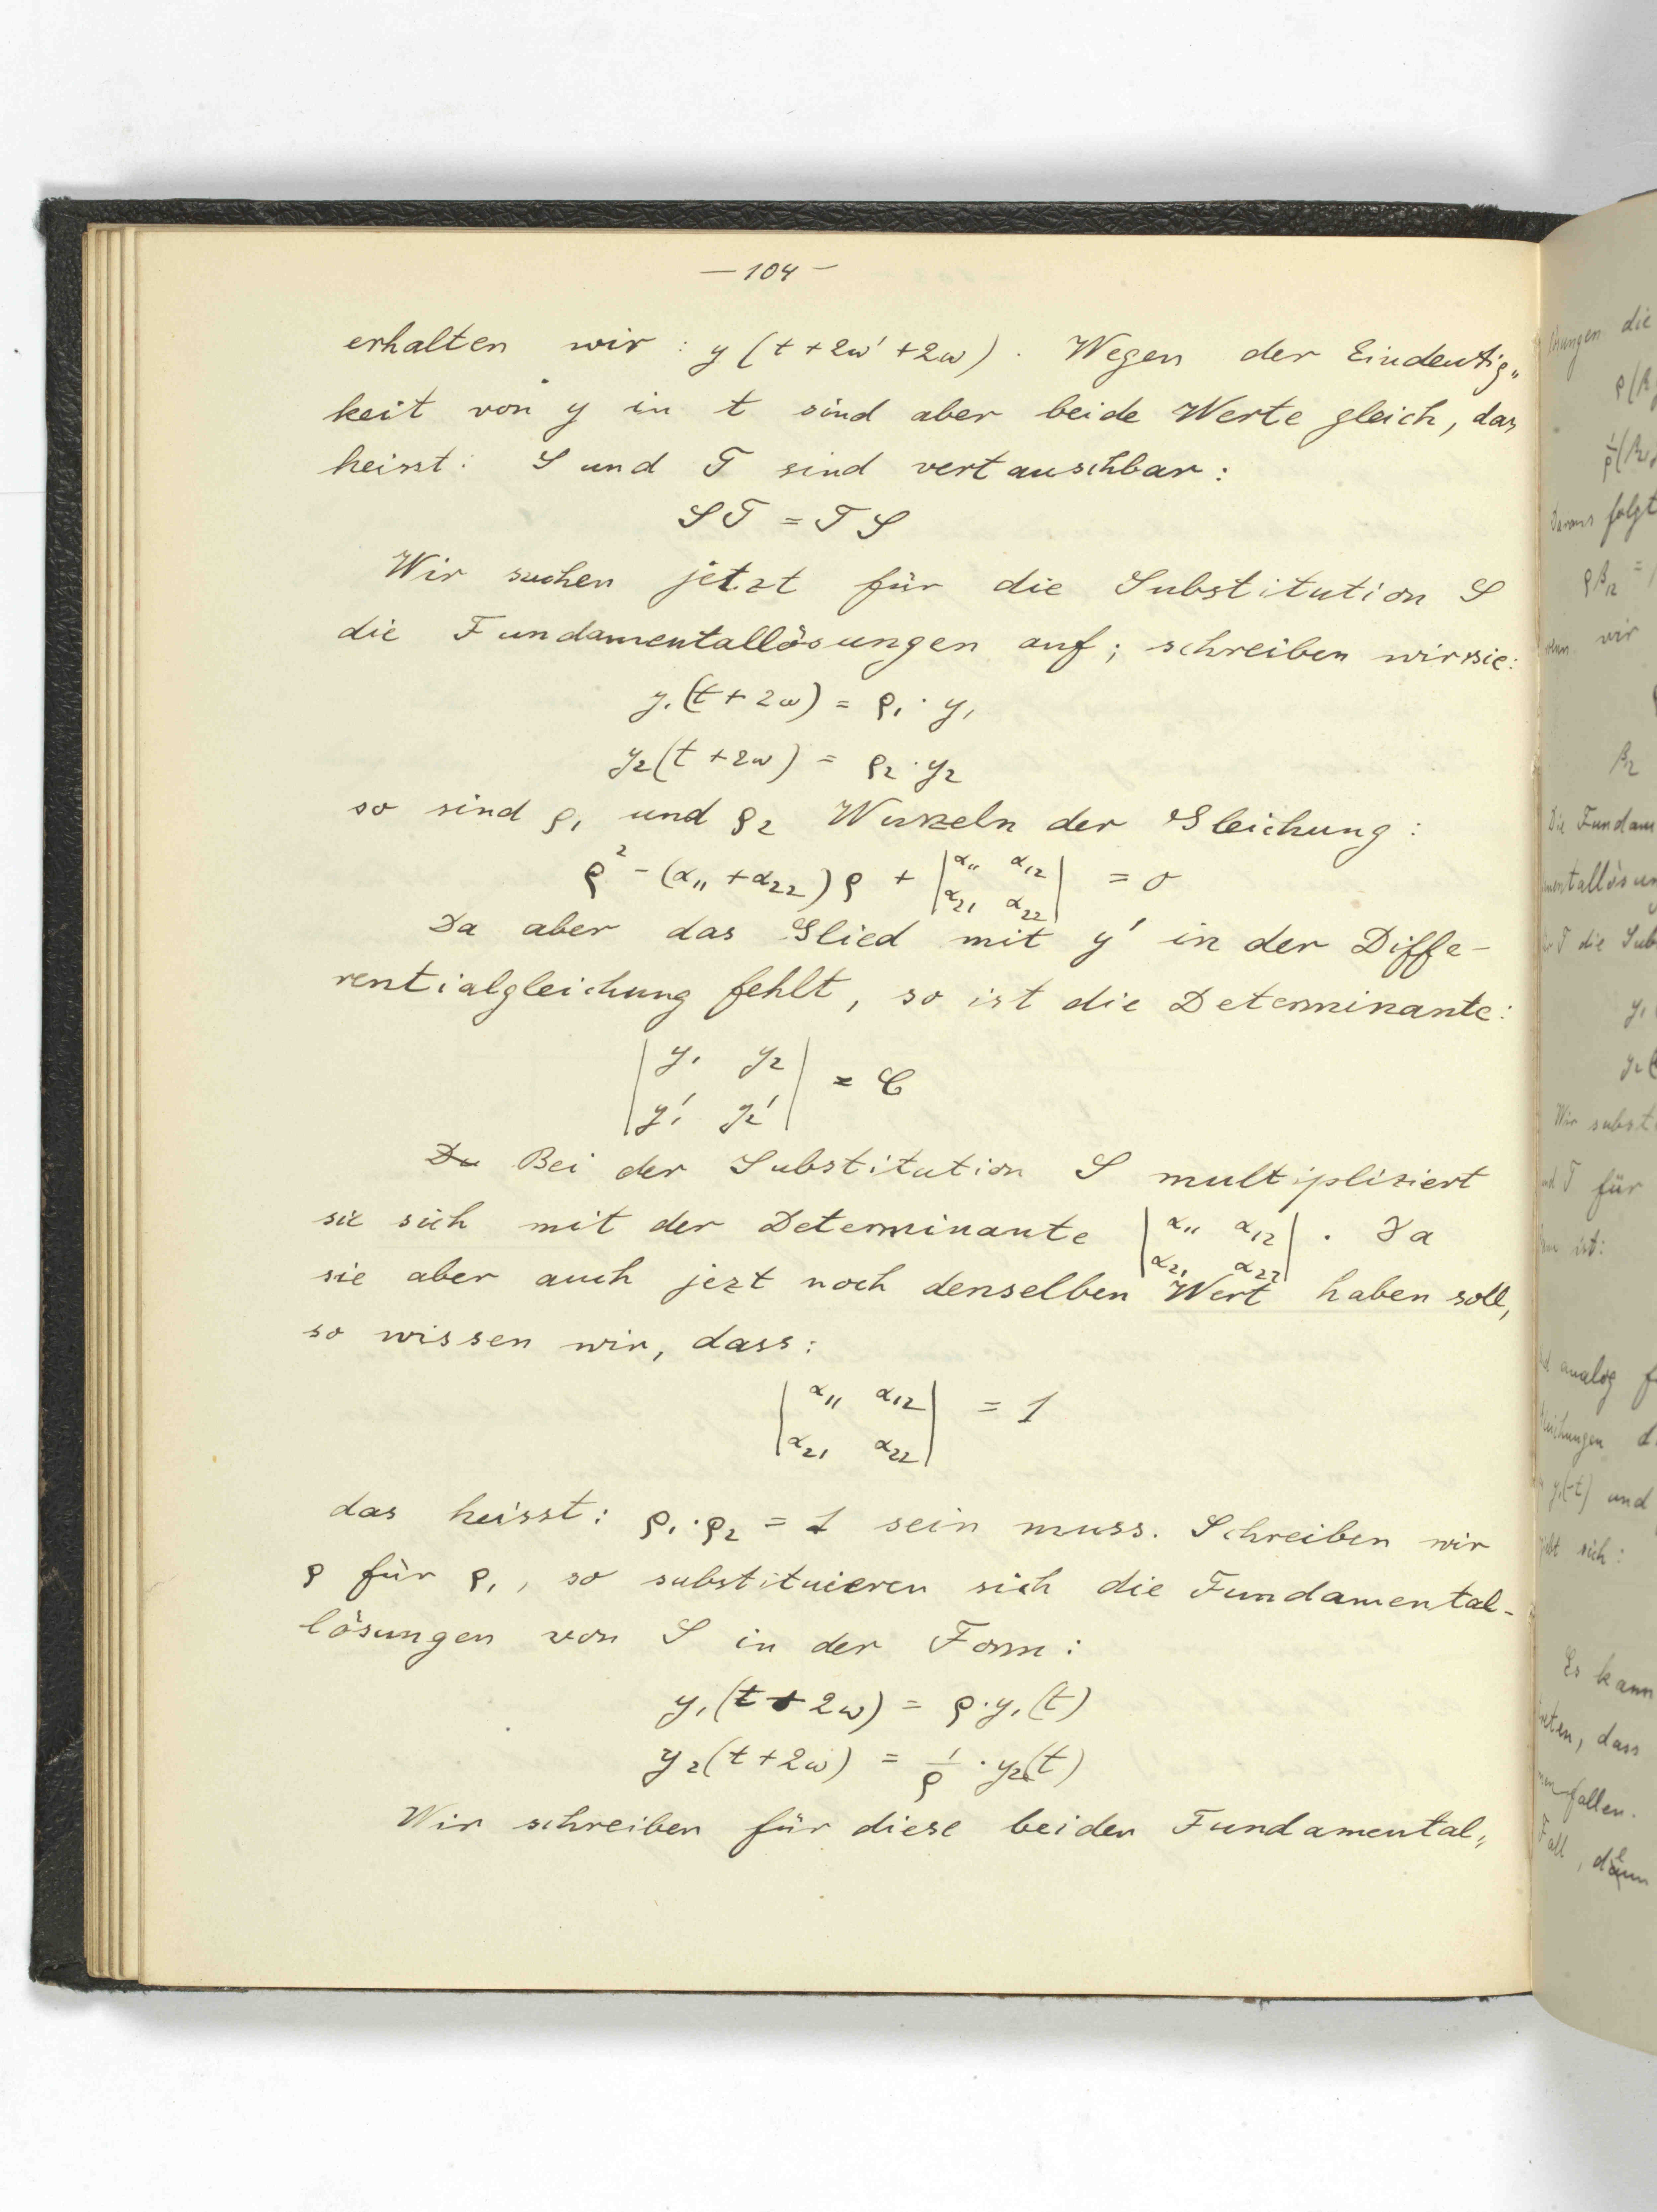 — 104 —
erhalten wir: y(t+2ω'+2ω). Wegen der Eindeutig„
keit von y in t sind aber beide Werte gleich, das
heisst: S und T sind vertauschbar:
ST = TS
Wir suchen jetzt für die Substitution S
die Fundamentallösungen auf; schreiben wir sie:
y₁(t+2ω) = ρ₁·y₁
y₂(t+2ω) = ρ₂·y₂
so sind ρ₁ und ρ₂ Wurzeln der Gleichung:
ρ² - (α₁₁+α₂₂)ρ + |α₁₁ α₁₂| = 0
|α₂₁ α₂₂|
Da aber das Glied mit y' in der Diffe-
rentialgleichung fehlt, so ist die Determinante:
|y₁ y₂| = C
|y₁' y₂'|
Da Bei der Substitution S multipliziert
sie sich mit der Determinante |α₁₁ α₁₂|. Da
|α₂₁ α₂₂|
sie aber auch jezt noch denselben Wert haben soll,
so wissen wir, dass:
|α₁₁ α₁₂| = 1
|α₂₁ α₂₂|
das heisst: ρ₁·ρ₂ = 1 sein muss. Schreiben wir
ρ für ρ₁, so substituieren sich die Fundamental-
lösungen von S in der Form:
y₁(t+2ω) = ρ·y₁(t)
y₂(t+2ω) = 1/ρ·y₂(t)
Wir schreiben für diese beiden Fundamental„
die
folgt
wir
Die Fundam
die Sub
Wir subst
T für
ist:
analog
und
sich:
Es kann
dass
fallen.
Fall, denn